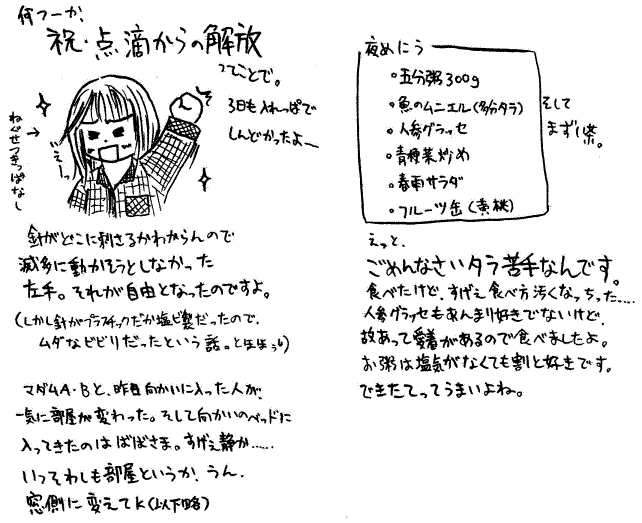 何つーか、
祝・点滴からの解放
ってことで。
3日も入れっぱで
しんどかったよー
ねぐせつきっぱなし
えーっ
針がどこに刺さるかわからんので
滅多に動かそうとしなかった
左手。それが自由となったのですよ。
(しかし針がプラスチックだか塩ビ製だったので、
ムダなビビリだったという話。とほほう)
マダムA・Bと、昨日向かいに入った人が、
一気に部屋が変わった。そして向かいのベッドに
入ってきたのはばばさま。すげぇ静か……
いっそわしも部屋というか、うん。
窓側に変えてk(以下略)
夜めにう
・五分粥300g
・魚のムニエル(多分タラ)
・人参グラッセ
・青梗菜炒め
・春雨サラダ
・フルーツ缶(黄桃)
そして
まずい柴。
えっと、
ごめんなさいタラ苦手なんです。
食べたけど、すげぇ食べ方汚くなっちった……
人参グラッセもあんまり好きでないけど、
故あって愛着があるので食べましたよ。
お粥は塩気がなくても割と好きです。
できたてってうまいよね。